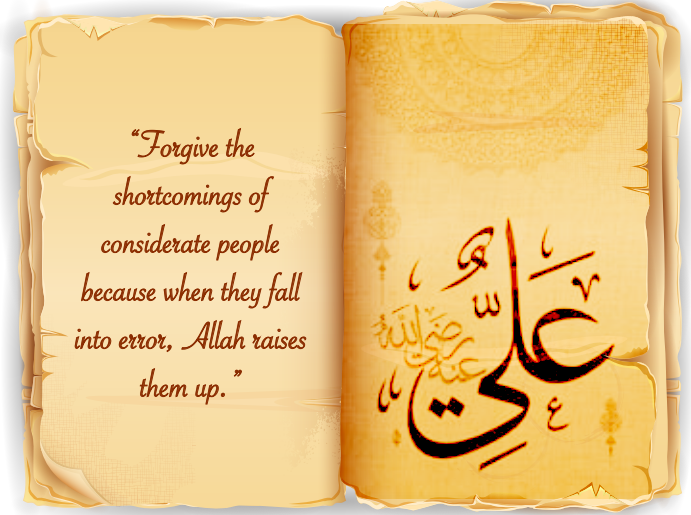 “Forgive the
shortcomings of
considerate people
because when they fall
into error, Allah raises
them up.”
عليٌّ
رضي الله
عنه